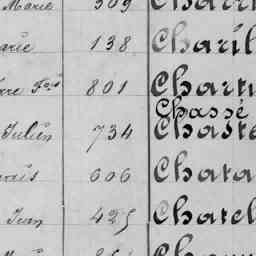 Marie 309
arie 138 Charil
rre Fois 801 Chart
Chassé
Julien 734 Chaste
606 Chata
Jean 425 Chatel